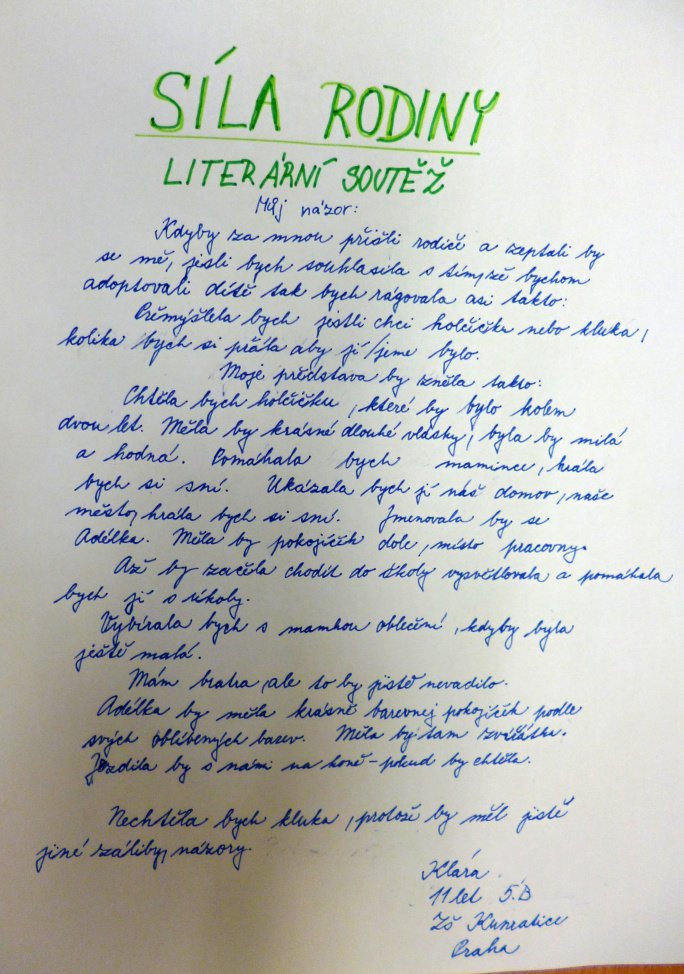 SÍLA RODINY
LITERÁRNÍ SOUTĚŽ
Můj názor:
Kdyby za mnou přišli rodiče a zeptali by
se mě, jesli bych souhlasila s tím, že bychom
adoptovali dítě tak bych rágovala asi takto:
Přemýšlela bych jestli chci holčičku nebo kluka,
kolika bych si přála aby jí/jeme bylo.
Moje představa by zněla takto:
Chtěla bych holčičku, které by bylo kolem
dvou let. Měla by krásné dlouhé vlásky, byla by milá
a hodná. Pomáhala bych mamince, hrála
bych si sní. Ukázala bych jí náš domov, naše
město, hrála bych si sní. Jmenovala by se
Adélka. Měla by pokojíček dole, místo pracovny.
Až by začela chodit do školy vysvětlovala a pomáhala
bych jí s úkoly.
Vybírala bych s mamkou oblečení, kdyby byla
ještě malá.
Mám bratra, ale to by jistě nevadilo.
Adélka by měla krásně barevnej pokojíček podle
svých oblíbených barev. Měla by tam zvířátka.
Jezdila by s námi na koně - pokud by chtěla.
Nechtěla bych kluka, protože by měl jistě
jiné záliby, názory.
Klára
11 let 5.B
ZŠ Kunratice
Praha